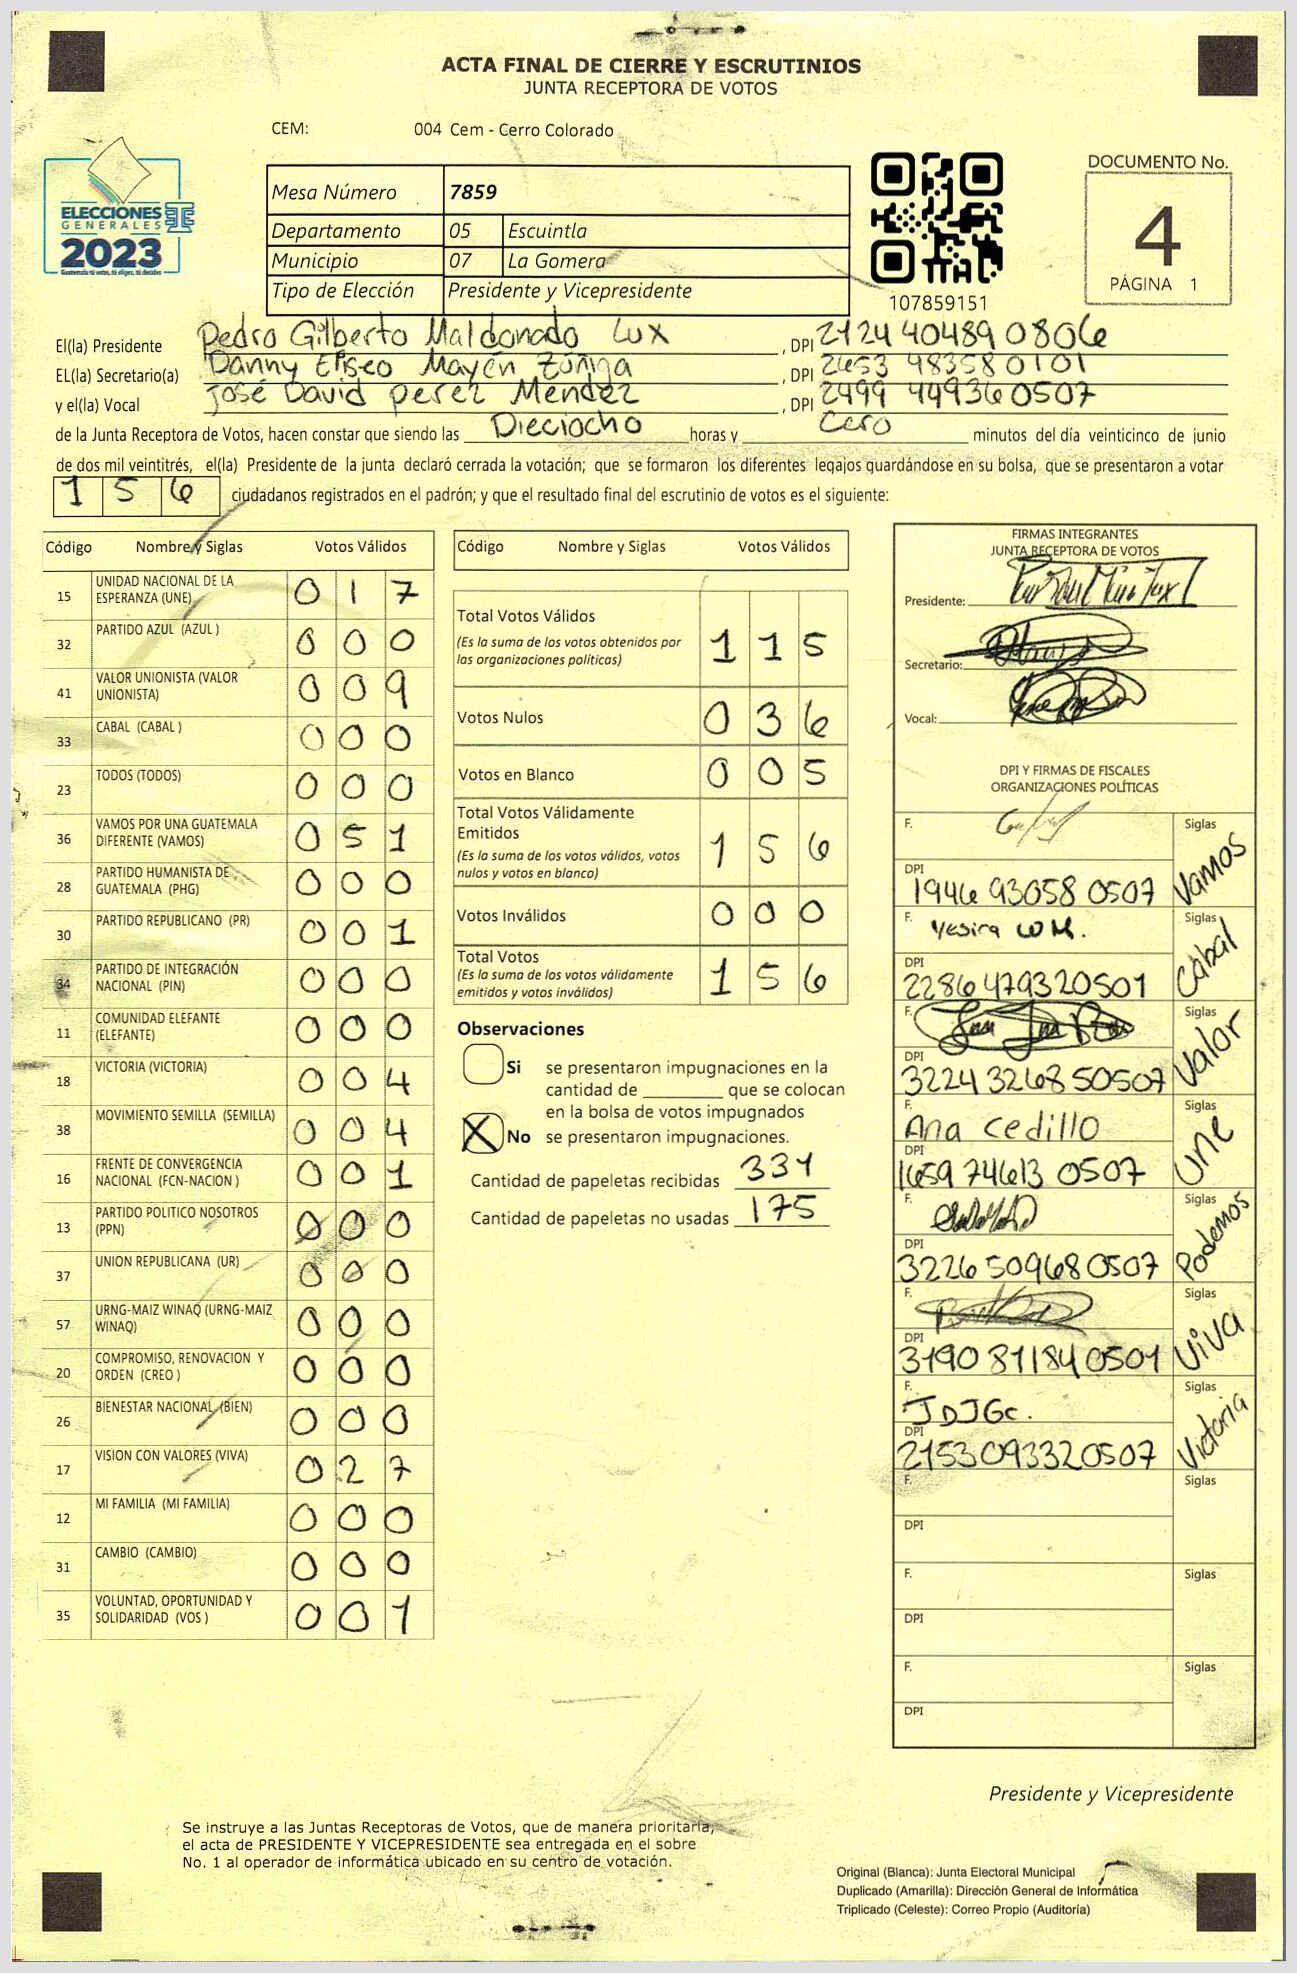 ACTA FINAL DE CIERRE Y ESCRUTINIOS
JUNTA RECEPTORA DE VOTOS
CEM: 004 Cem - Cerro Colorado
ELECCIONES
GENERALES
2023
Guatemala tú votas, tú eliges, tú decides
Mesa Número 7859
Departamento 05 Escuintla
Municipio 07 La Gomera
Tipo de Elección Presidente y Vicepresidente
107859151
DOCUMENTO No.
4
PÁGINA 1
El(la) Presidente Pedro Gilberto Maldonado Lux , DPI 2124 40489 0806
EL(la) Secretario(a) Danny Eliseo Mayén Zúñiga , DPI 2653 48358 0101
y el(la) Vocal José David perez Mendez , DPI 2499 44936 0507
de la Junta Receptora de Votos, hacen constar que siendo las Dieciocho horas y Cero minutos del día veinticinco de junio
de dos mil veintitrés, el(la) Presidente de la junta declaró cerrada la votación; que se formaron los diferentes legajos guardándose en su bolsa, que se presentaron a votar
1 5 6 ciudadanos registrados en el padrón; y que el resultado final del escrutinio de votos es el siguiente:
Código Nombre y Siglas Votos Válidos
15 UNIDAD NACIONAL DE LA ESPERANZA (UNE) 0 1 7
32 PARTIDO AZUL (AZUL ) 0 0 0
41 VALOR UNIONISTA (VALOR UNIONISTA) 0 0 9
33 CABAL (CABAL ) 0 0 0
23 TODOS (TODOS) 0 0 0
36 VAMOS POR UNA GUATEMALA DIFERENTE (VAMOS) 0 5 1
28 PARTIDO HUMANISTA DE GUATEMALA (PHG) 0 0 0
30 PARTIDO REPUBLICANO (PR) 0 0 1
34 PARTIDO DE INTEGRACIÓN NACIONAL (PIN) 0 0 0
11 COMUNIDAD ELEFANTE (ELEFANTE) 0 0 0
18 VICTORIA (VICTORIA) 0 0 4
38 MOVIMIENTO SEMILLA (SEMILLA) 0 0 4
16 FRENTE DE CONVERGENCIA NACIONAL (FCN-NACION ) 0 0 1
13 PARTIDO POLITICO NOSOTROS (PPN) 0 0 0
37 UNION REPUBLICANA (UR) 0 0 0
57 URNG-MAIZ WINAQ (URNG-MAIZ WINAQ) 0 0 0
20 COMPROMISO, RENOVACION Y ORDEN (CREO ) 0 0 0
26 BIENESTAR NACIONAL (BIEN) 0 0 0
17 VISION CON VALORES (VIVA) 0 2 7
12 MI FAMILIA (MI FAMILIA) 0 0 0
31 CAMBIO (CAMBIO) 0 0 0
35 VOLUNTAD, OPORTUNIDAD Y SOLIDARIDAD (VOS ) 0 0 1
Código Nombre y Siglas Votos Válidos
Total Votos Válidos
(Es la suma de los votos obtenidos por las organizaciones políticas) 1 1 5
Votos Nulos 0 3 6
Votos en Blanco 0 0 5
Total Votos Válidamente Emitidos
(Es la suma de los votos válidos, votos nulos y votos en blanco) 1 5 6
Votos Inválidos 0 0 0
Total Votos
(Es la suma de los votos válidamente emitidos y votos inválidos) 1 5 6
Observaciones
Si se presentaron impugnaciones en la
cantidad de ________ que se colocan
en la bolsa de votos impugnados
X No se presentaron impugnaciones.
Cantidad de papeletas recibidas 331
Cantidad de papeletas no usadas 175
FIRMAS INTEGRANTES
JUNTA RECEPTORA DE VOTOS
Presidente:
Secretario:
Vocal:
DPI Y FIRMAS DE FISCALES
ORGANIZACIONES POLÍTICAS
F. Siglas Vamos
DPI 1946 93058 0507
F. Yesira W M. Siglas Cabal
DPI 2286 47932 0501
F. Siglas Valor
DPI 3224 32685 0507
F. Ana Cedillo Siglas Une
DPI 1659 74613 0507
F. Siglas Podemos
DPI 3226 50968 0507
F. Siglas Viva
DPI 3190 81184 0501
F. JDJGc. Siglas Victoria
DPI 2153 09332 0507
F. Siglas
DPI
F. Siglas
DPI
F. Siglas
DPI
Presidente y Vicepresidente
Se instruye a las Juntas Receptoras de Votos, que de manera prioritaria,
el acta de PRESIDENTE Y VICEPRESIDENTE sea entregada en el sobre
No. 1 al operador de informática ubicado en su centro de votación.
Original (Blanca): Junta Electoral Municipal
Duplicado (Amarilla): Dirección General de Informática
Triplicado (Celeste): Correo Propio (Auditoría)